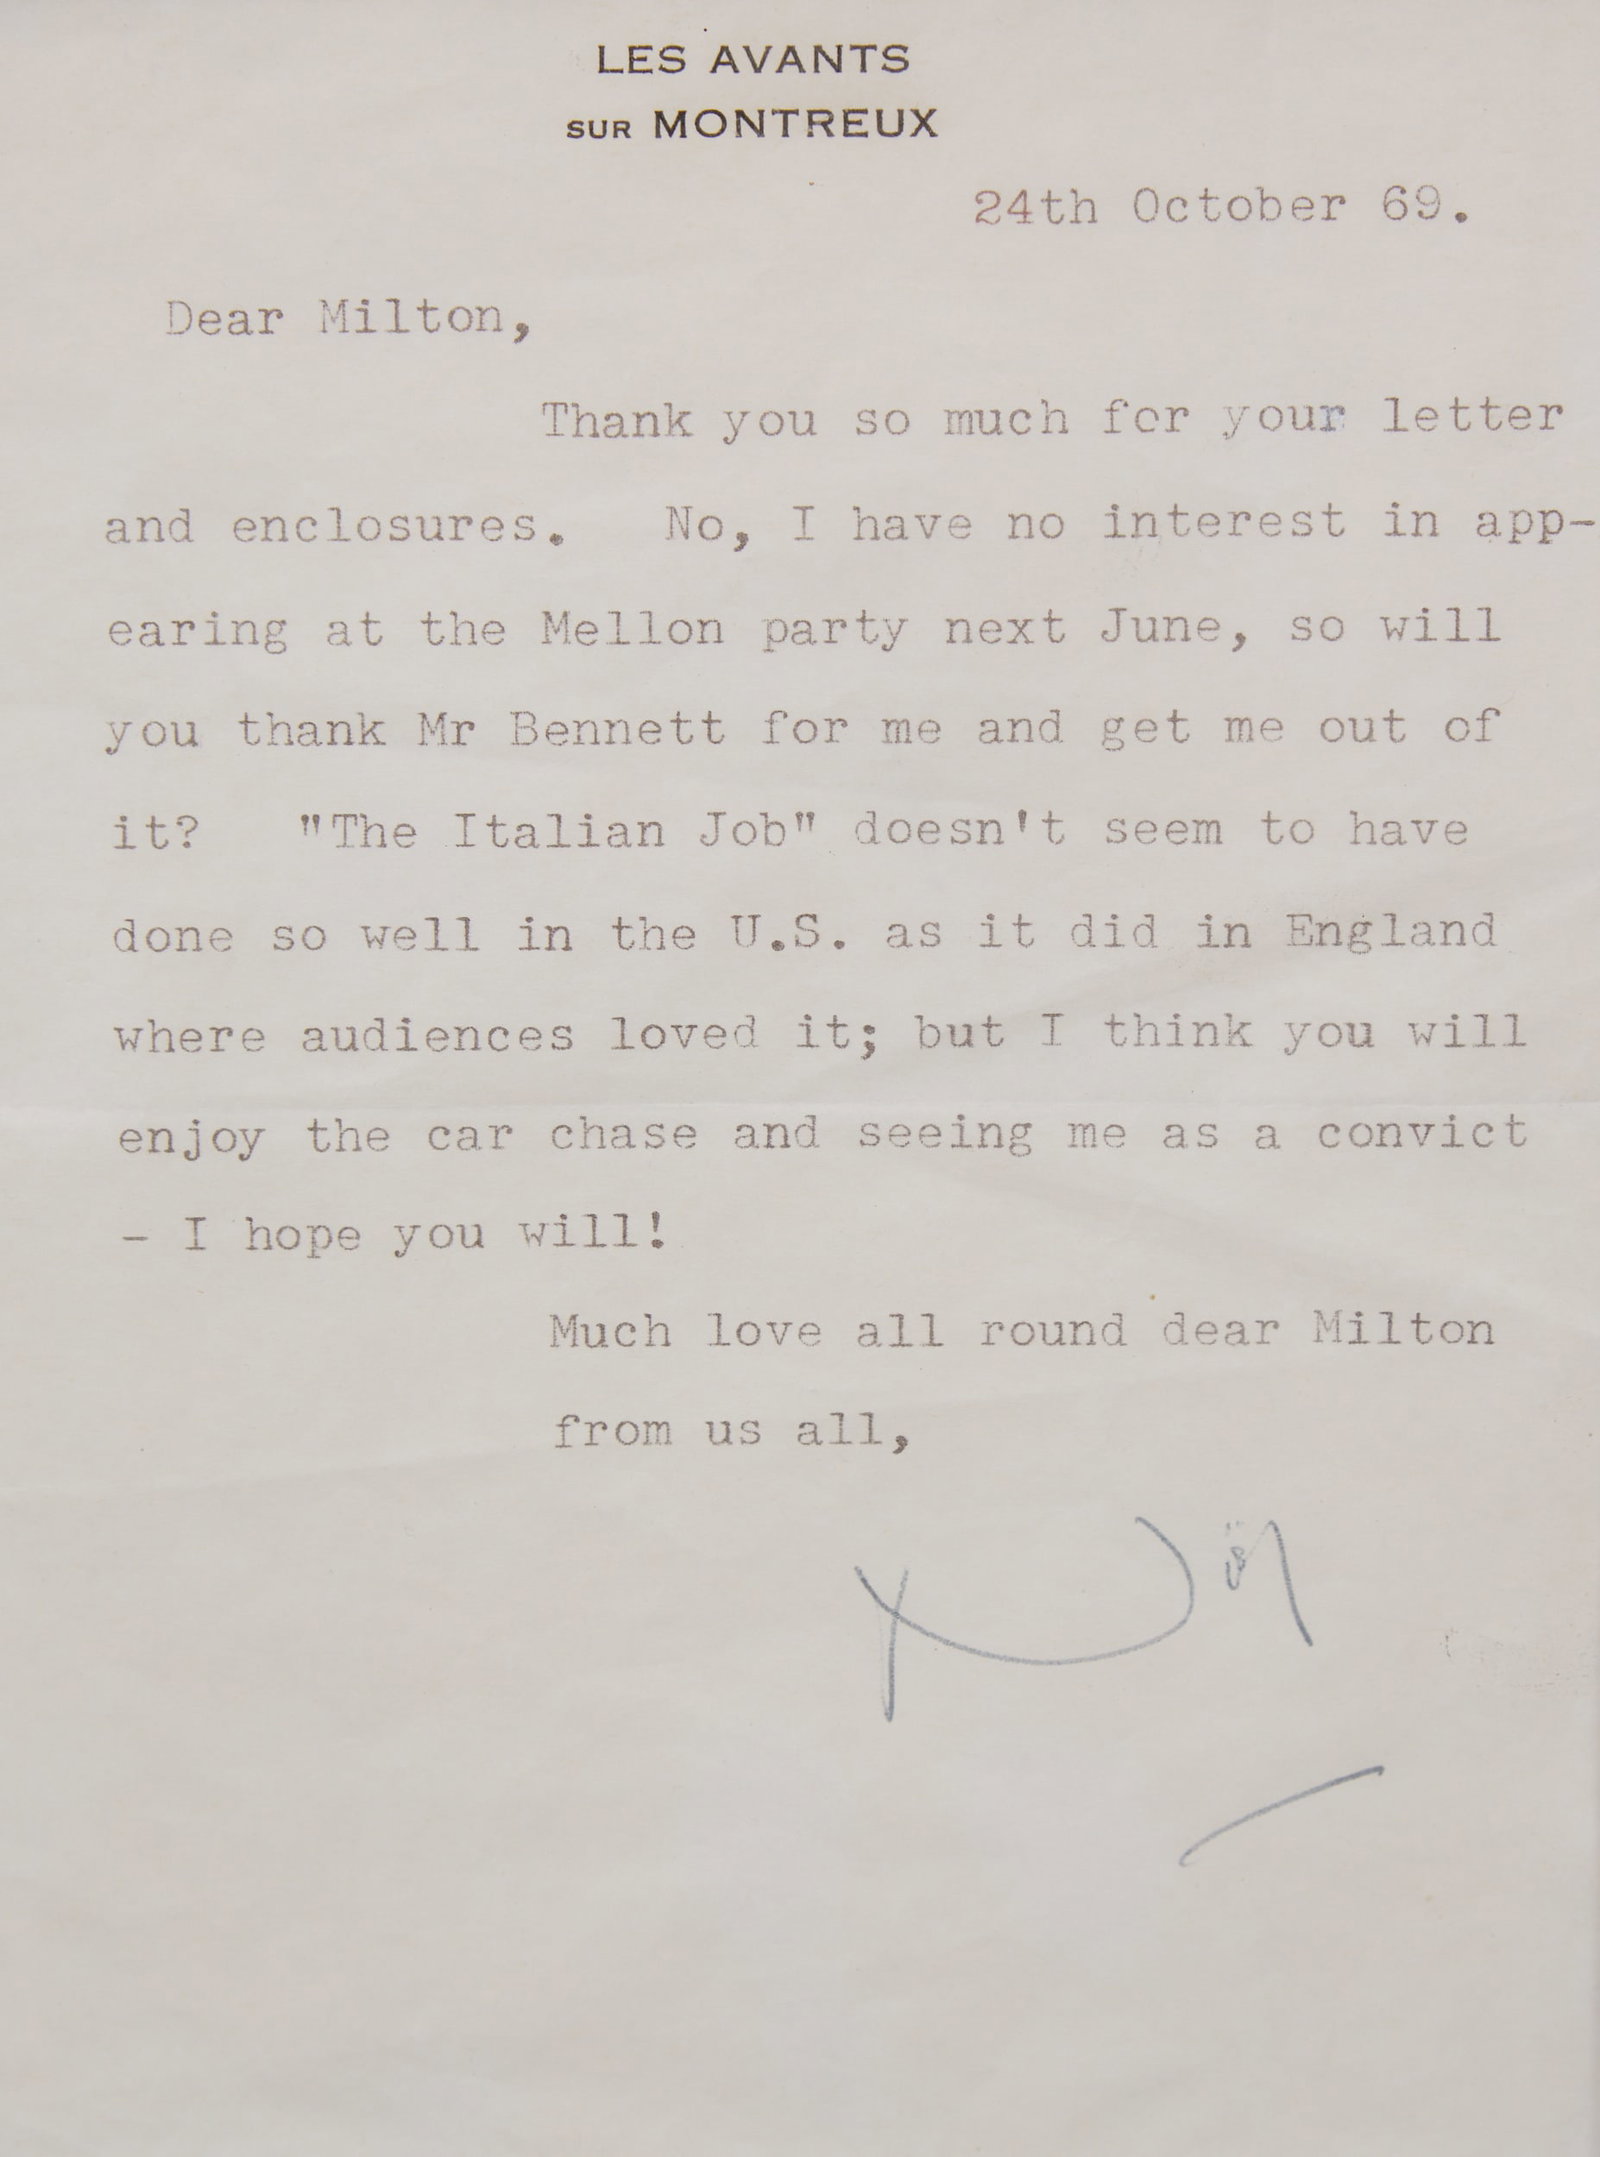 LES AVANTS
SUR MONTREUX
24th October 69.
Dear Milton,
Thank you so much for your letter
and enclosures. No, I have no interest in app-
earing at the Mellon party next June, so will
you thank Mr Bennett for me and get me out of
it? "The Italian Job" doesn't seem to have
done so well in the U.S. as it did in England
where audiences loved it; but I think you will
enjoy the car chase and seeing me as a convict
- I hope you will!
Much love all round dear Milton
from us all,
Noël